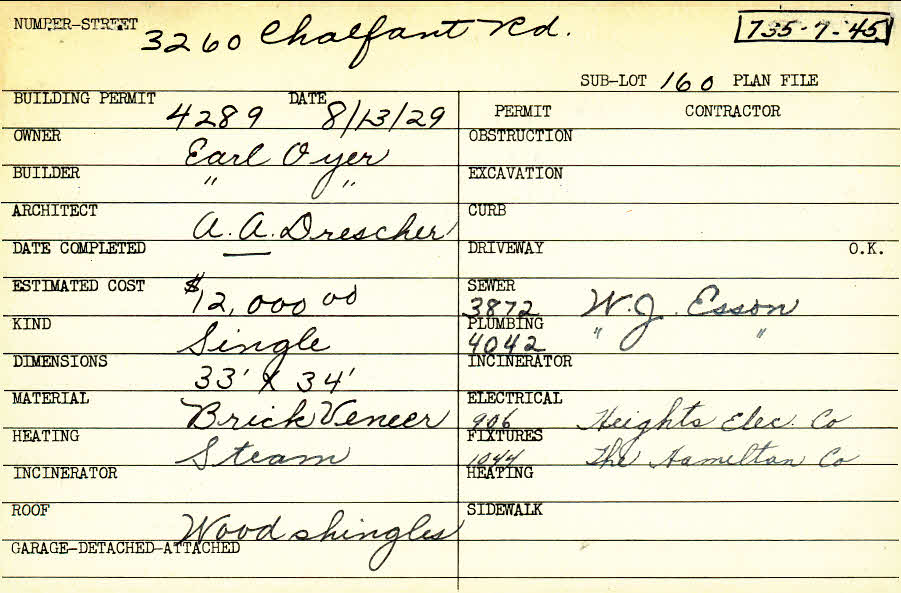 NUMBER-STREET 3260 Chalfant Rd. 735-7-45
SUB-LOT 160 PLAN FILE
BUILDING PERMIT 4289 DATE 8/13/29
PERMIT CONTRACTOR
OWNER Earl Oyer
OBSTRUCTION
BUILDER " "
EXCAVATION
ARCHITECT A. A. Drescher
CURB
DATE COMPLETED —
DRIVEWAY O.K.
ESTIMATED COST $12,000 00
SEWER 3872 W. J. Esson
KIND Single
PLUMBING 4042 " "
DIMENSIONS 33' X 34'
INCINERATOR
MATERIAL Brick Veneer
ELECTRICAL 906 Heights Elec. Co
HEATING Steam
FIXTURES 1044 The Hamilton Co
INCINERATOR
HEATING
ROOF Wood shingles
SIDEWALK
GARAGE-DETACHED-ATTACHED